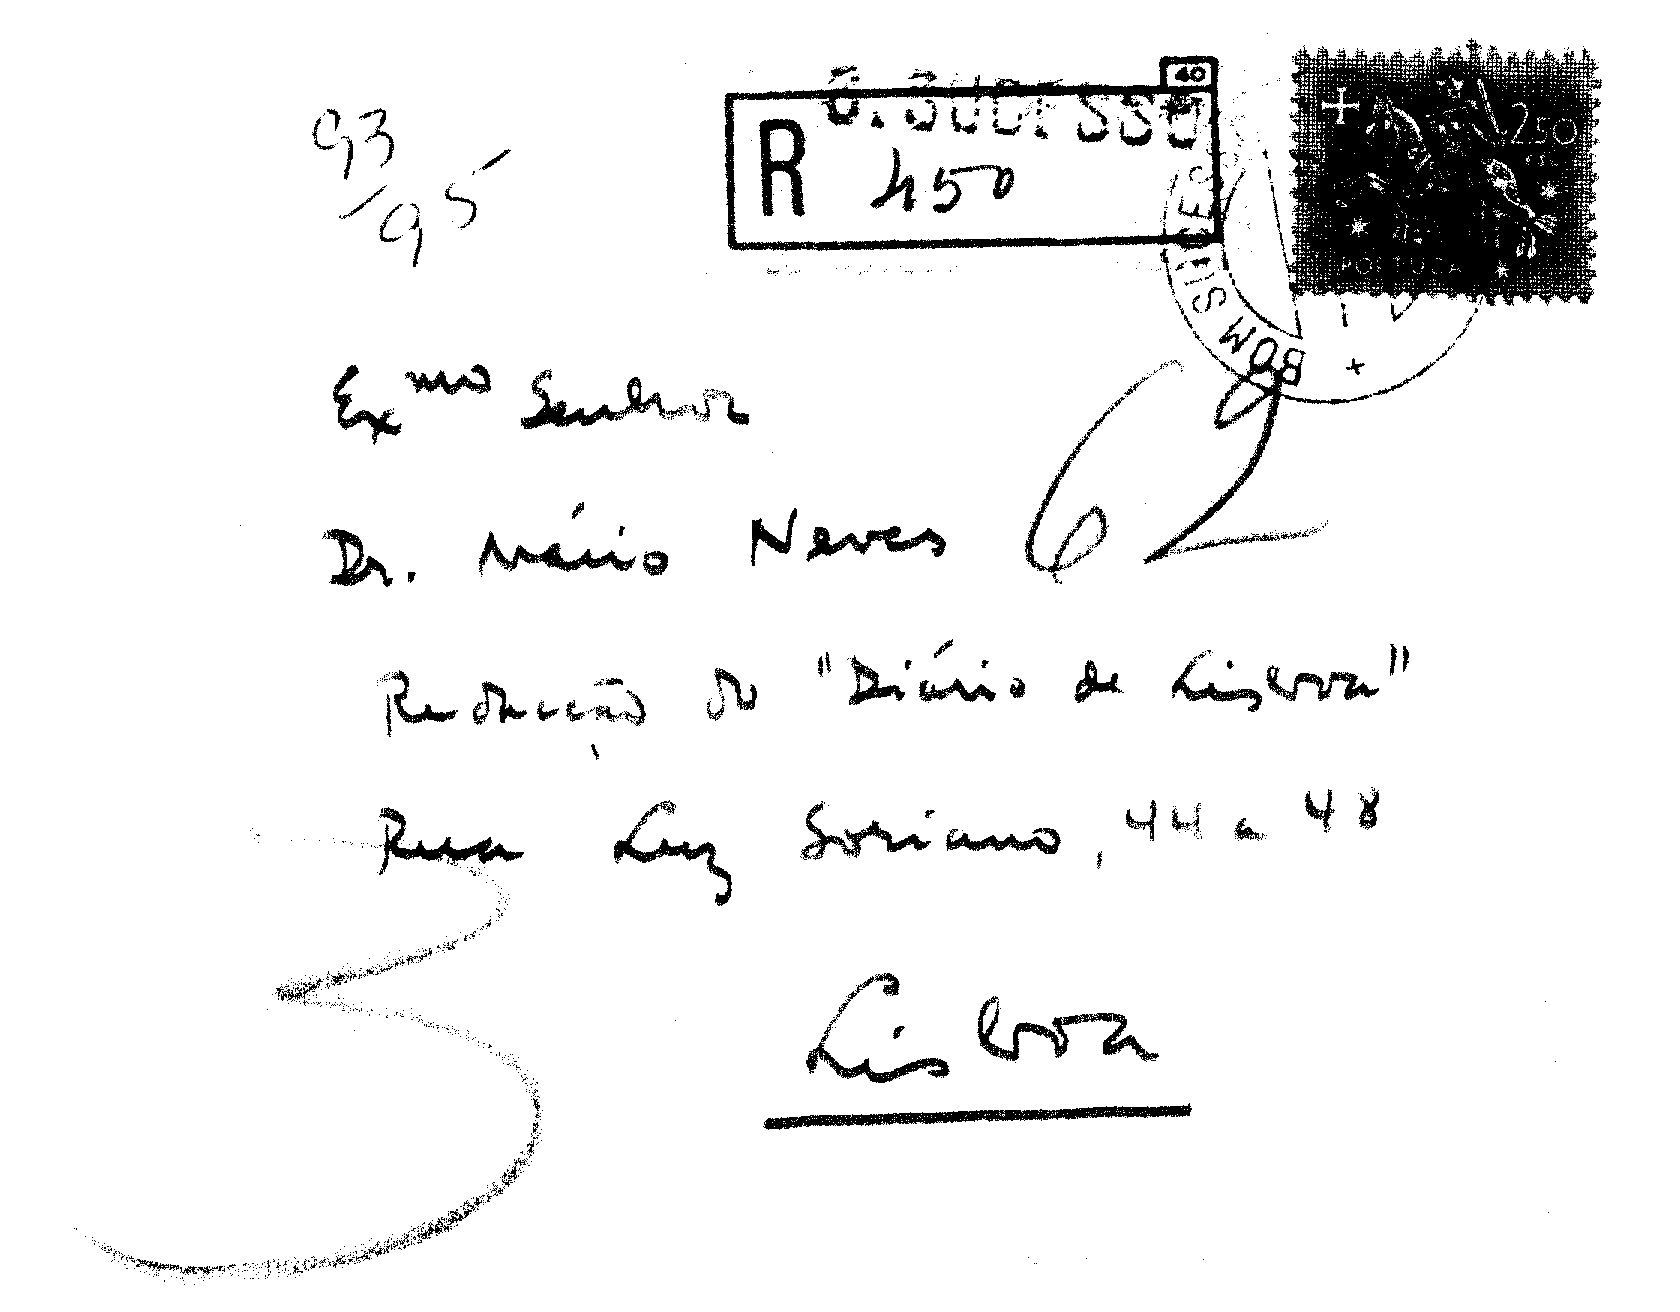 40
B. SUCESSO
R 450
93
95
+ 250
PORTUGAL
BOM SUCESSO
Exmo Senhor
62
Dr. Mário Neves
Redacção do "Diário de Lisboa"
Rua Luz Soriano, 44 a 48
3
Lisboa